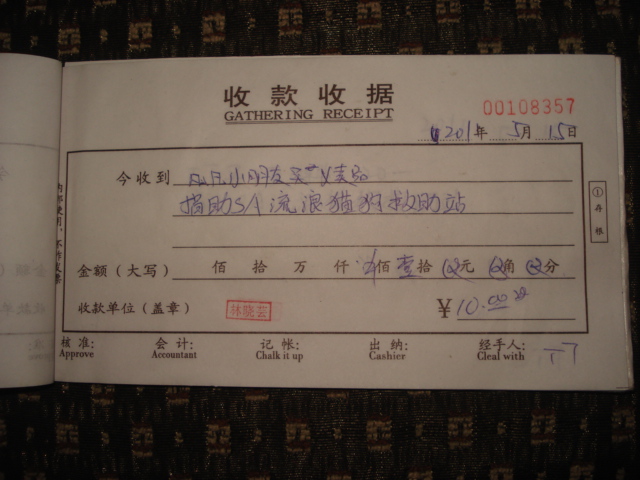 收款收据
GATHERING RECEIPT
00108357
201 年 5月15日
今收到 小朋友买义卖品
捐助SA流浪猫狗救助站
金额(大写) 佰 拾 万 仟 佰壹拾 元 角 分
收款单位(盖章) 林晓芸 ¥10.00
核准: 会计: 记帐: 出纳: 经手人:
Approve Accountant Chalk it up Cashier Cleal with
①存根
内部使用,不作发票